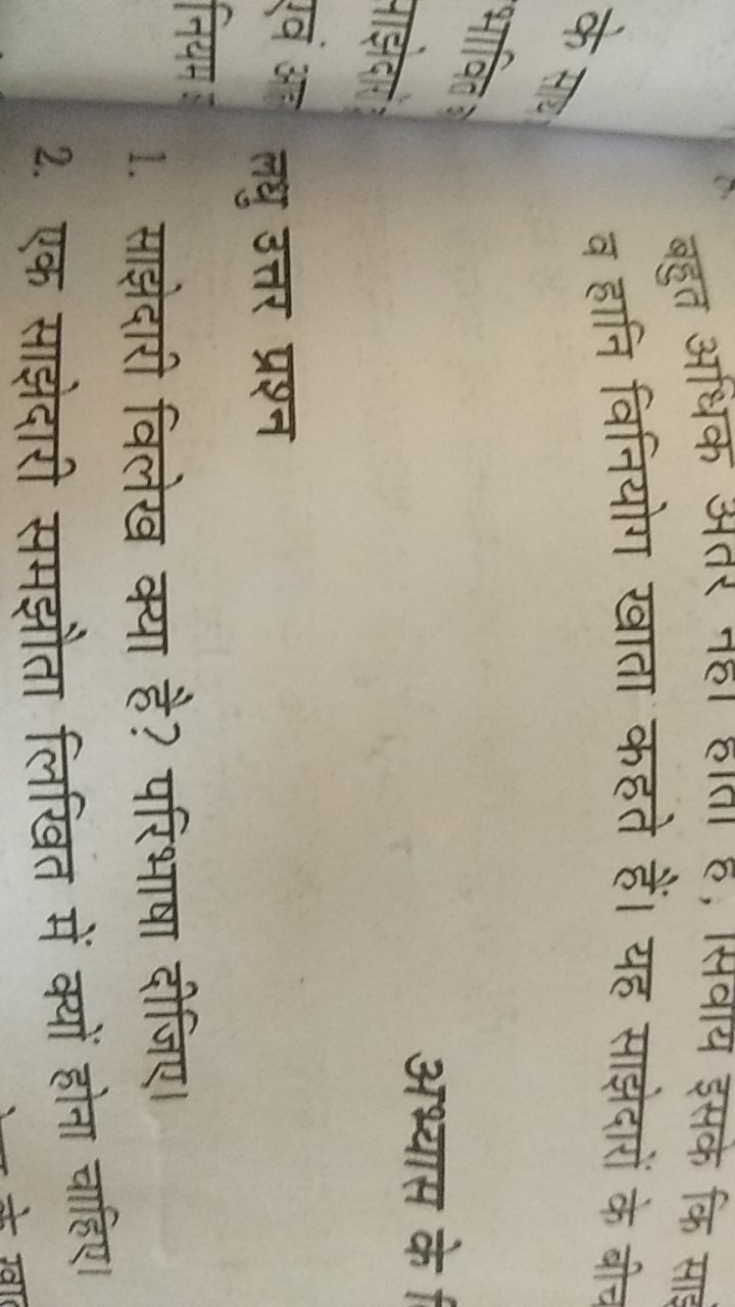 बहुत अधिक अंतर नहीं होता है, सिवाय इसके कि
व हानि विनियोग खाता कहते हैं। यह साझेदारों के बीच
अभ्यास के
लघु उत्तर प्रश्न
1. साझेदारी विलेख क्या है? परिभाषा दीजिए।
2. एक साझेदारी समझौता लिखित में क्यों होना चाहिए।
के
एवं
नियम